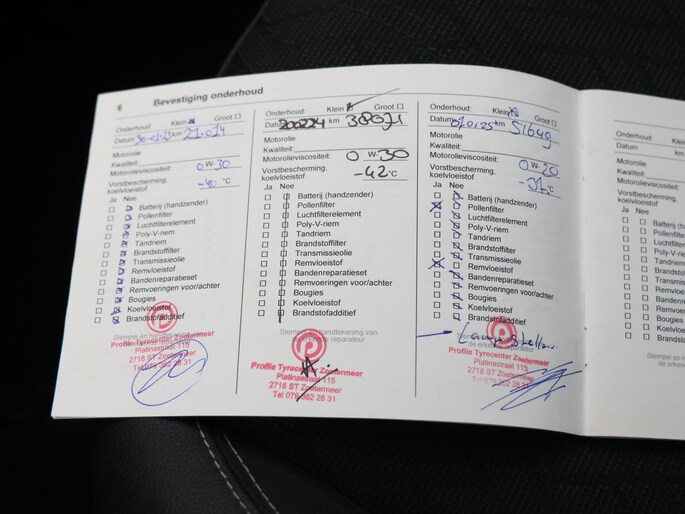 6 Bevestiging onderhoud
Onderhoud: Klein Groot
Datum km 21.074
Motorolie
Kwaliteit
Motorolieviscositeit: 0 W-30
Vorstbescherming, koelvloeistof -40 °C
Ja Nee
Batterij (handzender)
Pollenfilter
Luchtfilterelement
Poly-V-riem
Tandriem
Brandstoffilter
Transmissieolie
Remvloeistof
Bandenreparatieset
Remvoeringen voor/achter
Bougies
Koelvloeistof
Brandstofadditief
Profile Tyrecenter Zoetermeer
Platinastraat 115
2718 ST Zoetermeer
Tel 079 362 28 31
Onderhoud: Klein Groot
Datum 200224 km 38071
Motorolie
Kwaliteit:
Motorolieviscositeit: 0 W-30
Vorstbescherming, koelvloeistof -42 °C
Ja Nee
Batterij (handzender)
Pollenfilter
Luchtfilterelement
Poly-V-riem
Tandriem
Brandstoffilter
Transmissieolie
Remvloeistof
Bandenreparatieset
Remvoeringen voor/achter
Bougies
Koelvloeistof
Brandstofadditief
Stempel en handtekening van
reparateur
Profile Tyrecenter Zoetermeer
Platinastraat 115
2718 ST Zoetermeer
Tel 079 362 28 31
Onderhoud: Klein Groot
Datum km 51649
Motorolie
Kwaliteit:
Motorolieviscositeit: 0 W-20
Vorstbescherming, koelvloeistof °C
Ja Nee
Batterij (handzender)
Pollenfilter
Luchtfilterelement
Poly-V-riem
Tandriem
Brandstoffilter
Transmissieolie
Remvloeistof
Bandenreparatieset
Remvoeringen voor/achter
Bougies
Koelvloeistof
Brandstofadditief
Profile Tyrecenter Zoetermeer
Platinastraat 115
2718 ST Zoetermeer
Tel 079 362 28 31
Onderhoud:
Datum
Motorolie
Kwaliteit:
Motorolieviscositeit
Vorstbescherming,
koelvloeistof
Ja Nee